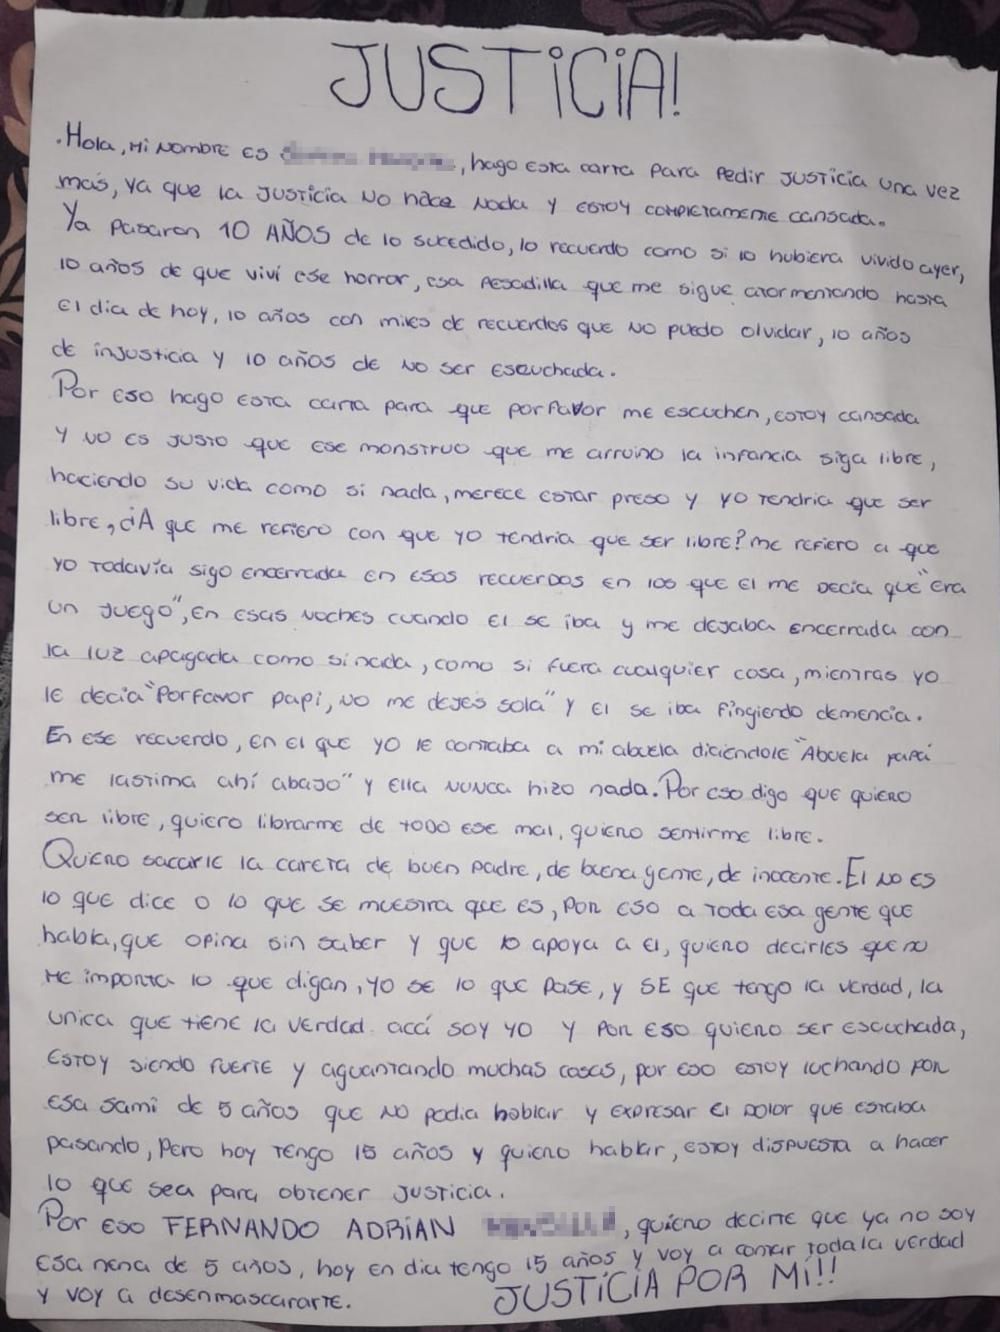 JUSTICIA!
.Hola, Mi NOMBRE ES , hago esta carta para Pedir JUSTICIA una vez
más, ya que la JUSTICIA NO hace NADA y ESTOY COMPLETAMENTE cansada.
Ya Pasaron 10 AÑOS de lo sucedido, lo recuerdo como si lo hubiera vivido ayer,
10 años de que viví ese horror, esa Pesadilla que me sigue atormentando hasta
El dia de hoy, 10 años con miles de recuerdos que NO puedo olvidar, 10 años
de injusticia y 10 años de NO SER Escuchada.
Por eso hago esta carta para que porfavor me escuchen, estoy cansada
Y NO ES JUSTO que ESE MONSTRUO que me arruino la infancia siga libre,
haciendo su vida como si nada, merece estar preso y yo tendria que ser
libre, ¿A que me refiero con que yo tendria que ser libre? me refiero a que
yo todavía sigo encerrada en esos recuerdos en los que el me decia que "era
un Juego", en esas noches cuando el se iba y me dejaba encerrada con
la luz apagada como si nada, como si fuera cualquier cosa, mientras yo
le decia "Porfavor papi, NO me dejes sola" y el se iba fingiendo demencia.
En ese recuerdo, en el que yo le contaba a mi abuela diciéndole "Abuela papá
me lastima ahí abajo" y Ella NUNCA hizo nada. Por eso digo que quiero
ser libre, quiero librarme de todo ese mal, quiero sentirme libre.
Quiero sacarle la careta de buen padre, de buena gente, de inocente. El NO ES
lo que dice o lo que se muestra que es, por eso a toda esa gente que
habla, que opina sin saber y que lo apoya a el, quiero decirles que no
me importa lo que digan, yo se lo que pase, y SE que tengo la verdad, la
unica que tiene la verdad acá soy yo y por eso quiero ser escuchada,
Estoy siendo fuerte y aguantando muchas cosas, por eso estoy luchando por
esa sami de 5 años que NO podia hablar y expresar el dolor que estaba
pasando, Pero hoy tengo 15 años y quiero hablar, estoy dispuesta a hacer
lo que sea para obtener JUSTICIA.
Por eso FERNANDO ADRIAN , quiero decirte que ya no soy
Esa nena de 5 años, hoy en dia tengo 15 años y voy a contar toda la verdad
y voy a desenmascararte.
JUSTICIA POR MÍ!!